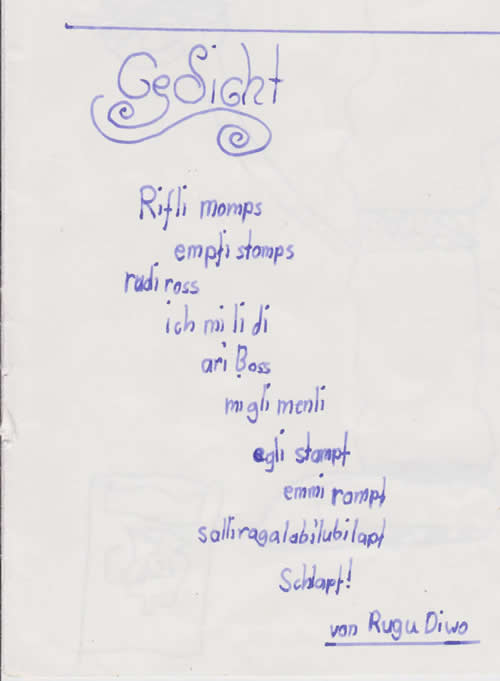 Gedicht
Rifli momps
empfi stomps
rudi ross
ich mi li di
ari Boss
migli menli
egli stampf
emmi rampf
salliragalabilubilapf
Schlapf!
von Rugu Diwo